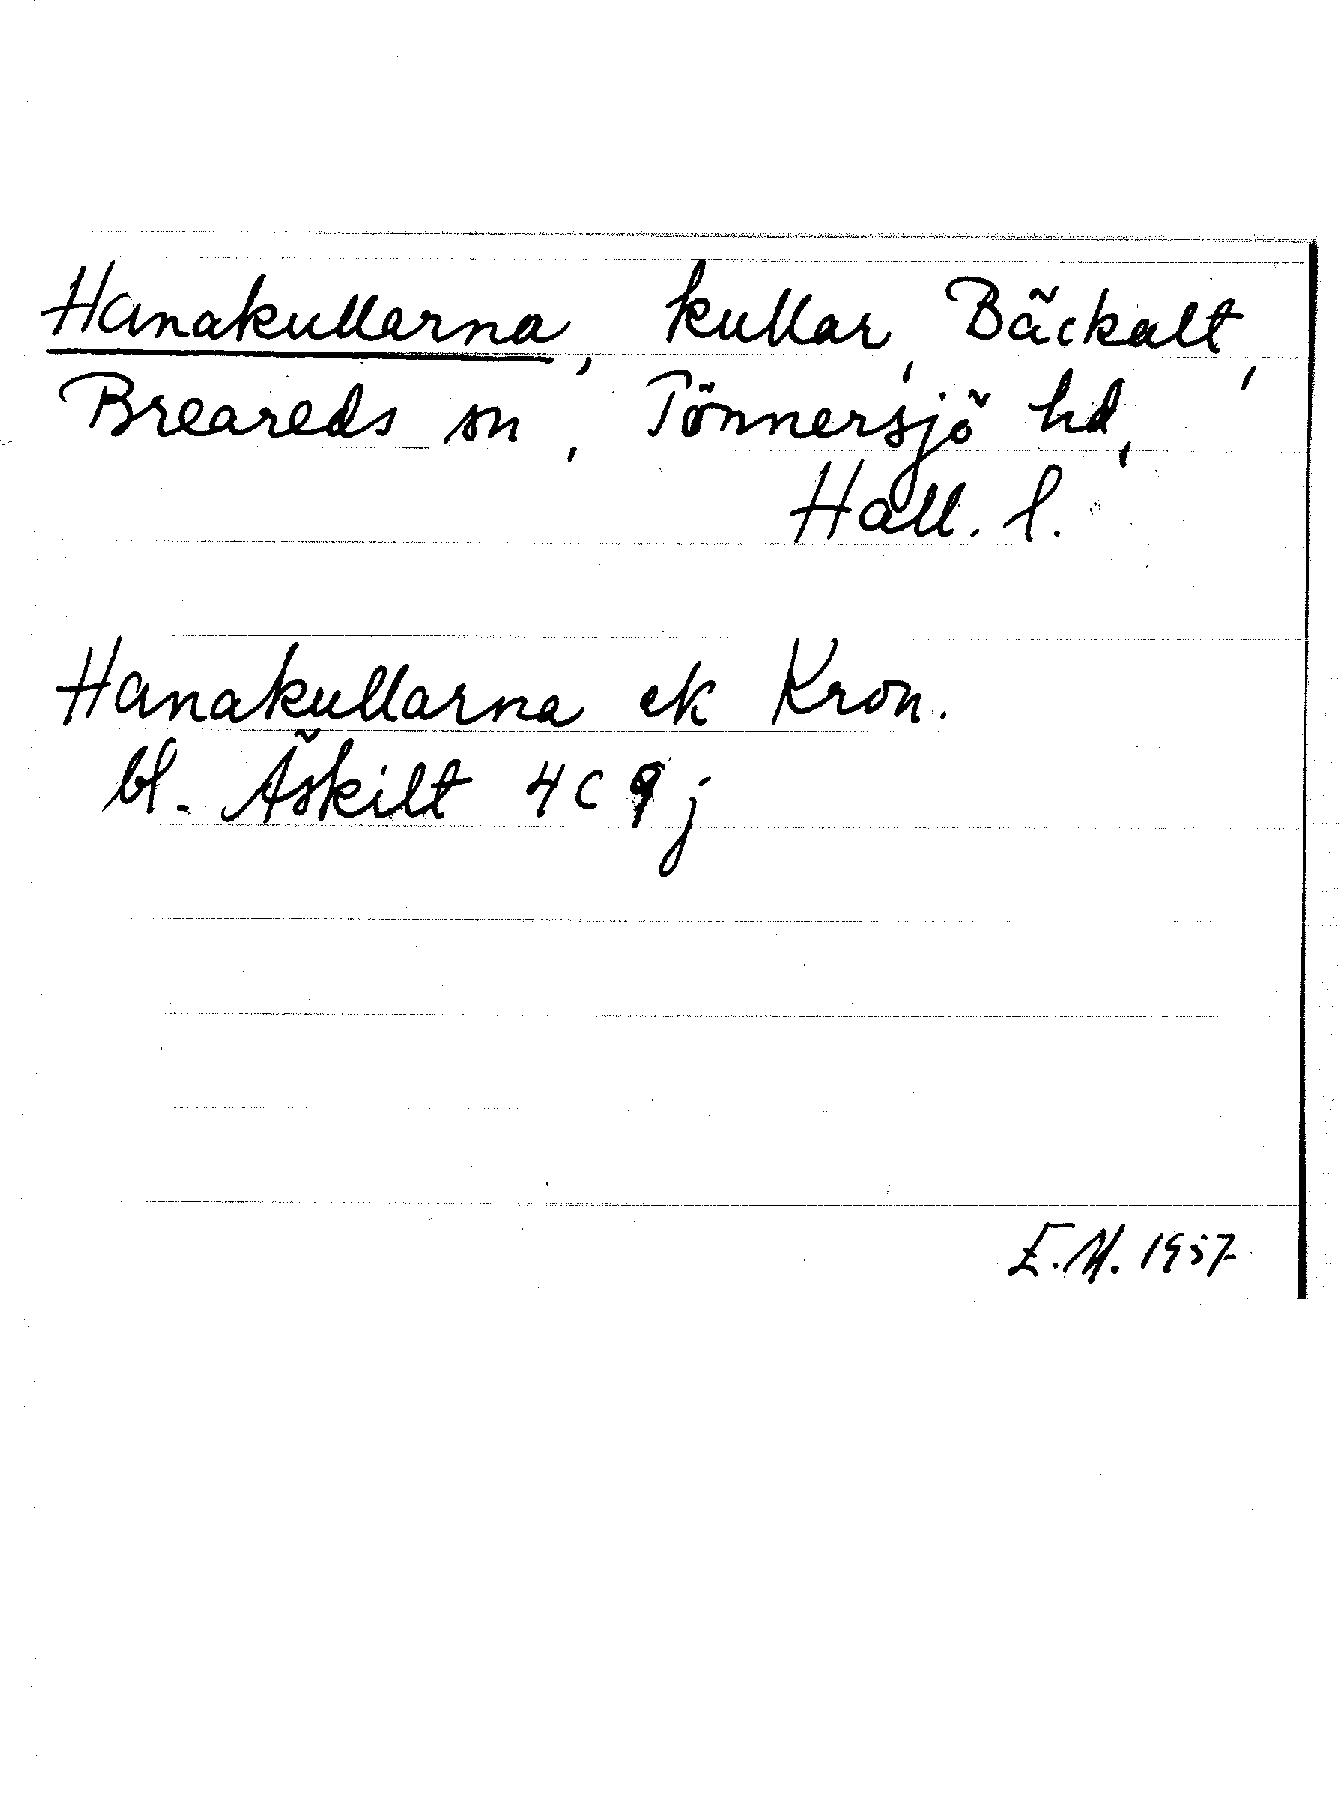 Hanakullarna, kullar, Bäckalt,
Breareds sn, Tönnersjö hd,
Hall. l.
Hanakullarna ek Kron.
bl. Äskilt 4 C 9 j
E.M. 1957